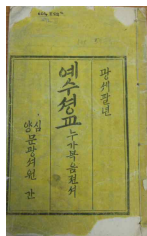 광셔팔년
예수셩교
누가복음젼셔
심양문광셔원 간